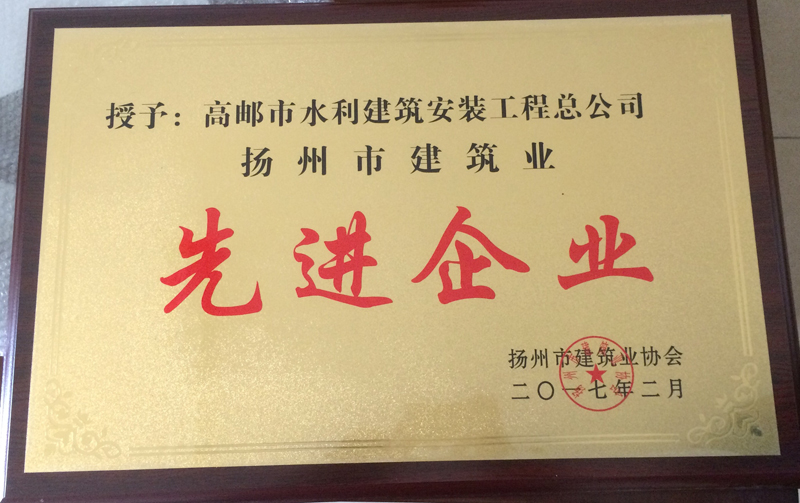 授予：高邮市水利建筑安装工程总公司
扬州市建筑业
先进企业
扬州市建筑业协会
二〇一七年二月